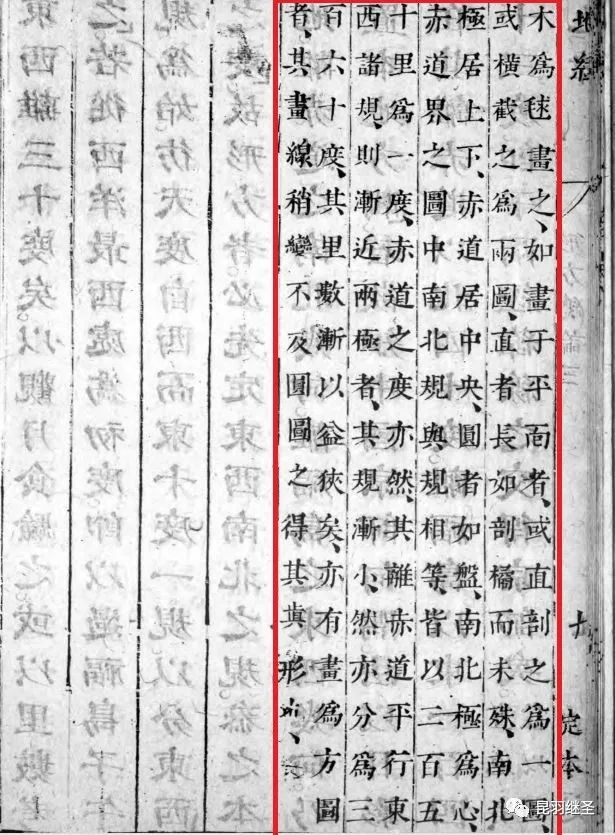 定本
木爲毬畫之、如畫于平面者、或直剖之爲一圖
或橫截之爲兩圖、直者長如剖橘而未殊、南北
極居上下、赤道居中央、圓者如盤、南北極爲心、
赤道界之圖中南北規與規相等、皆以三百五
十里爲一度、赤道之度亦然、其離赤道平行東
西諸規、則漸近兩極者、其規漸小、然亦分爲三
百六十度、其里數漸以益狹矣、亦有畫爲方圖
者、其畫線稍變不及圓圖之得其眞形
昆羽继圣